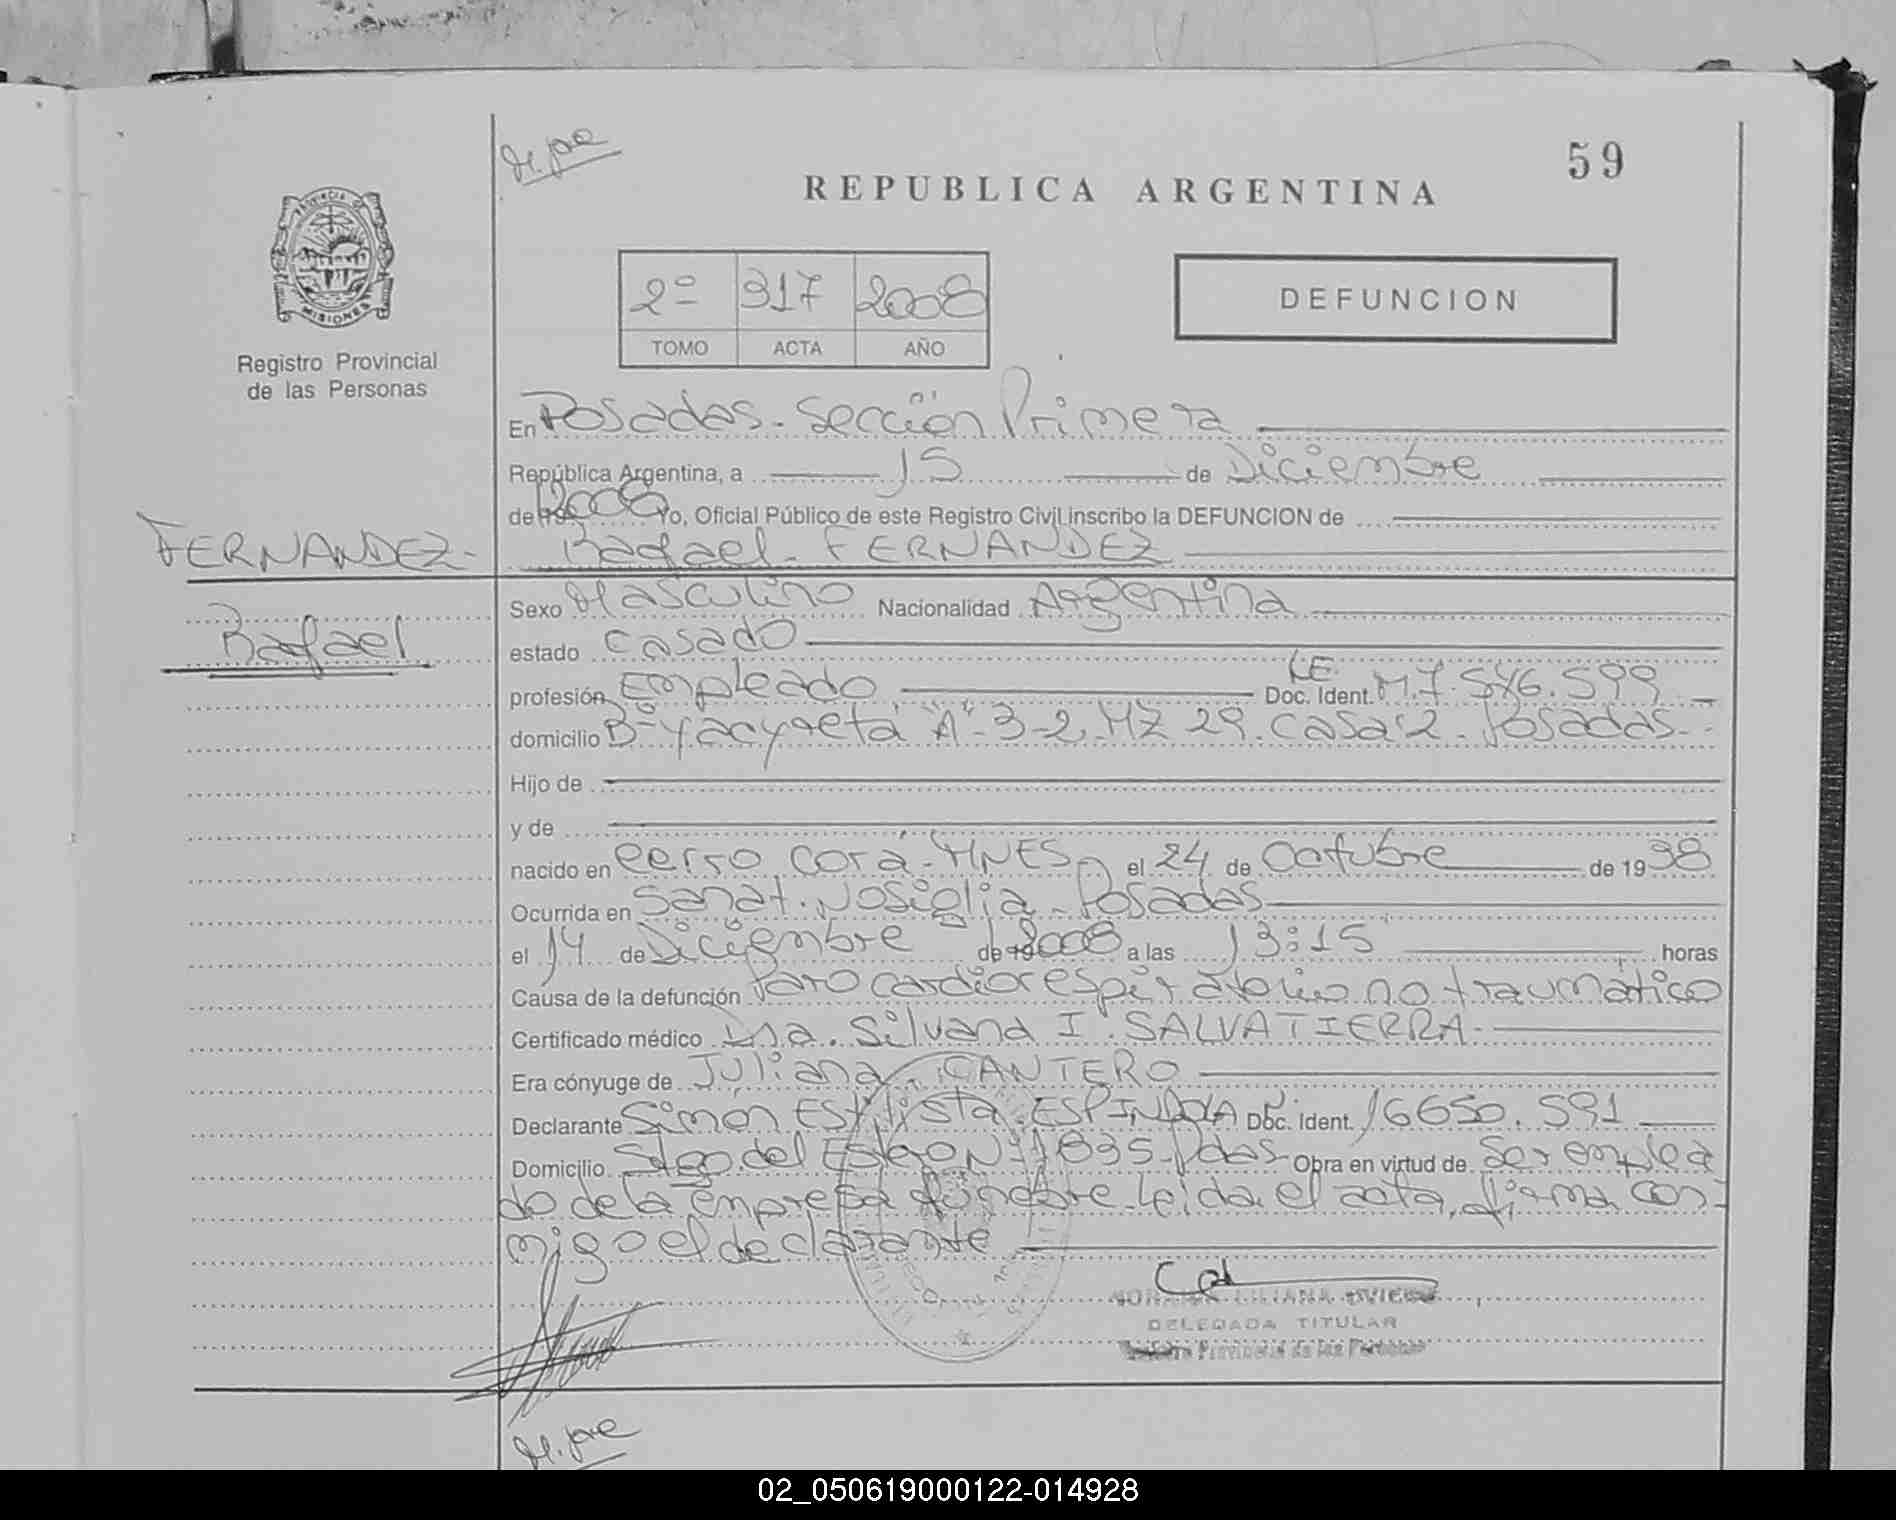 59
REPUBLICA ARGENTINA
PROVINCIA DE
MISIONES
Registro Provincial
de las Personas
2º 317 2008
TOMO ACTA AÑO
DEFUNCION
En Posadas - Sección Primera
República Argentina, a 15 de Diciembre
de 2008 Yo, Oficial Público de este Registro Civil inscribo la DEFUNCION de
FERNANDEZ - Rafael - FERNANDEZ
Rafael
Sexo Masculino Nacionalidad Argentina
estado casado
profesión Empleado Doc. Ident. L.E. M.7.546.599
domicilio Bº Yacyreta "A" 3-2 MZ 29. casa 2. Posadas.
Hijo de
y de
nacido en Cerro Corá - MNES, el 24 de Octubre de 1938
Ocurrida en Sanat. Nosiglia - Posadas
el 14 de Diciembre de 2008 a las 13:15 horas
Causa de la defunción Paro cardiorespiratorio no traumático
Certificado médico Dra. Silvana I. SALVATIERRA.
Era cónyuge de Juliana CANTERO
Declarante Simón Estilista ESPINDOLA Doc. Ident. 16650.591
Domicilio Stgo. del Estero Nº 1835 - Pdas - Obra en virtud de ser emplea
do de la empresa fúnebre. Leida el acta, firma con-
migo el declarante
LILIANA
DELEGADA TITULAR
Registro Provincial de las Personas
02_050619000122-014928